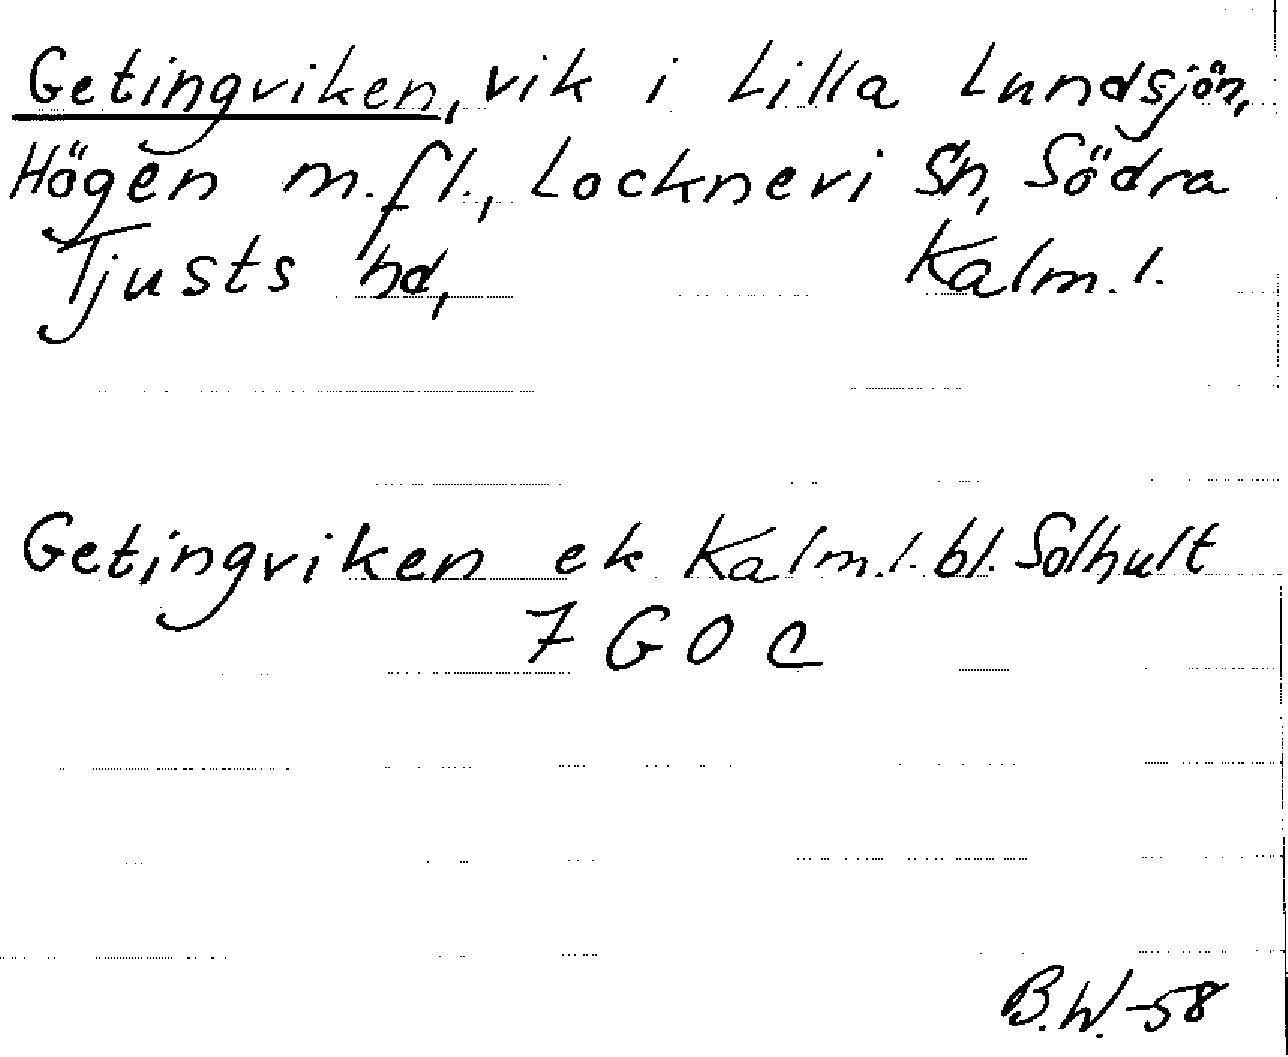 Getingviken, vik i Lilla Lundsjön,
Högen m.fl., Lockneri Sn, Södra
Tjusts hd, Kalm.l.
Getingviken ek Kalm.l.bl. Solhult
7 G O c
B.W.-58